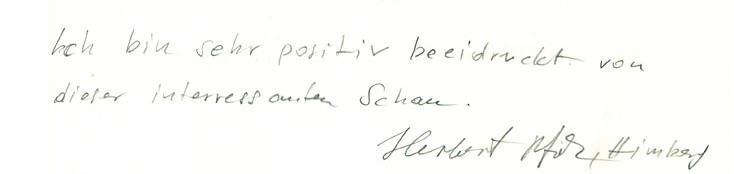 Ich bin sehr positiv beeidruckt von
dieser interressanten Schau.
Herbert Himberg